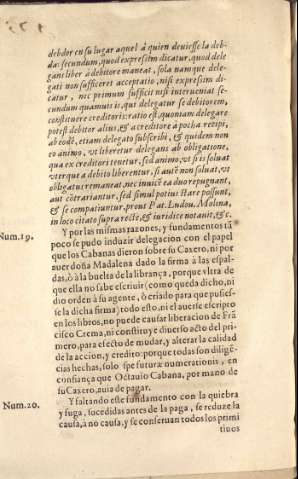 debdor en su lugar aquel à quien deuiesse la deb-
da: secundum, quod expresim dicatur, quod dele
gans liber à debitore maneat, sola namque dele-
gati non sufficeret acceptatio, nisi expresim di-
catur, nec primum sufficit nisi interueniat se-
cundum quamuis is, qui delegatur se debitorem,
constituere creditoris: ratio est, quoniam delegare
potest debitor alius, & à creditore à pocha recipi,
ab eodē, etiam delegato subscribi, & quidem non
eo animo, vt liberetur delegans ab obligatione,
qua ex creditori tenetur, sed animo, vt si is soluat
vterque a debito liberentur, si autē non soluat, vt
obligatus remaneat, nec inuicē ea duo repugnant,
aut cōtrariantur, sed simul potius stare possunt,
& se compatiuntur, prout Pat. Ludou. Molina,
in loco citato supra rectè, & iuridice notauit, &c.
Num.19. Y por las mismas razones, y fundamentos tā
poco se pudo induzir delegacion con el papel
que los Cabanas dieron sobre su Caxero, ni por
auer doña Madalena dado la firma à las espal-
das, ò à la buelta de la librança, porque vltra de
que ella no sabe escriuir (como queda dicho, ni
dio orden à su agente, ò criado para que pusies-
se la dicha firma) todo esto, ni el auerse escripto
en los libros, no puede causar liberacion de Frā
cisco Crema, ni constituye diuerso acto del pri-
mero, para efecto de mudar, y alterar la calidad
de la accion, y credito: porque todas son diligē-
cias hechas, solo spe futuræ numerationis, en
confiança que Octauio Cabana, por mano de
su Caxero, auia de pagar.
Num.20. Y faltando este fundamento con la quiebra
y fuga, sucedidas antes de la paga, se reduze la
causa, à no causa, y se conseruan todos los primi
tiuos